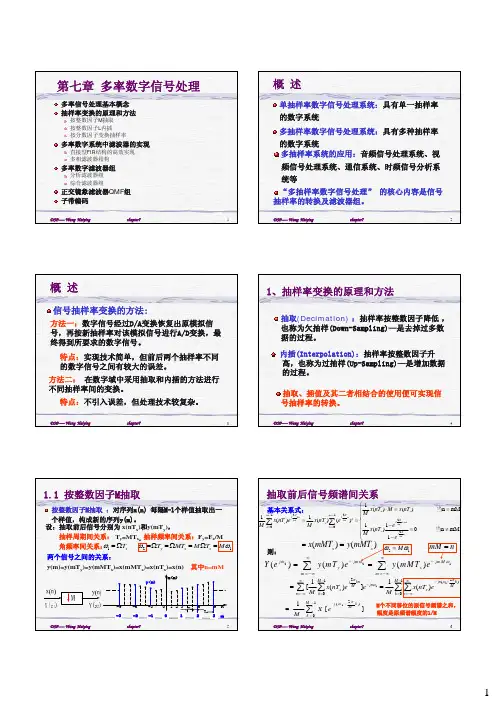 第七章 多率数字信号处理
多率信号处理基本概念
抽样率变换的原理和方法
按整数因子M抽取
按整数因子L内插
按分数因子变换抽样率
多率数字系统中滤波器的实现
直接型FIR结构的高效实现
多相滤波器结构
多率数字滤波器组
分析滤波器组
综合滤波器组
正交镜象滤波器QMF组
子带编码
chapter7
1
概 述
单抽样率数字信号处理系统：具有单一抽样率
的数字系统
多抽样率数字信号处理系统：具有多种抽样率
的数字系统
多抽样率系统的应用：音频信号处理系统、视
频信号处理系统、通信系统、时频信号分析系
统等
“多抽样率数字信号处理” 的核心内容是信号
抽样率的转换及滤波器组。
chapter7
2
概 述
信号抽样率变换的方法:
方法一：数字信号经过D/A变换恢复出原模拟信
号，再按新抽样率对该模拟信号进行A/D变换，最
终得到所要求的数字信号。
特点：实现技术简单，但前后两个抽样率不同
的数字信号之间有较大的误差。
方法二： 在数字域中采用抽取和内插的方法进行
不同抽样率间的变换。
特点：不引入误差，但处理技术较复杂。
chapter7
3
1、抽样率变换的原理和方法
抽取(Decimation) ：抽样率按整数因子降低 ，
也称为欠抽样(Down-Sampling)—是去掉过多数
据的过程。
内插(Interpolation)：抽样率按整数因子升
高，也称为过抽样(Up-Sampling)—是增加数据
的过程。
抽取、插值及其二者相结合的使用便可实现信
号抽样率的转换。
chapter7
4
1.1 按整数因子M抽取
按整数因子M抽取 ：对序列x(n) 每隔M-1个样值抽取出一
个样值，构成新的序列y(m)。
设：抽取前后信号分别为 x(nTx)和y(mTy)。
两个信号之间的关系：
y(m)=y(mTy)=y(mMTx)=x(mMTx)=x(nTx)=x(n) 其中n=mM
x(n)
M
y(m)
chapter7
抽取前后信号频谱间关系
基本关系式：
= x(mMTx) = y(mTy)
则：
mM = n
M个不同移位的原信号频谱之和，
幅度是原频谱幅度的1/M
chapter7
6
1